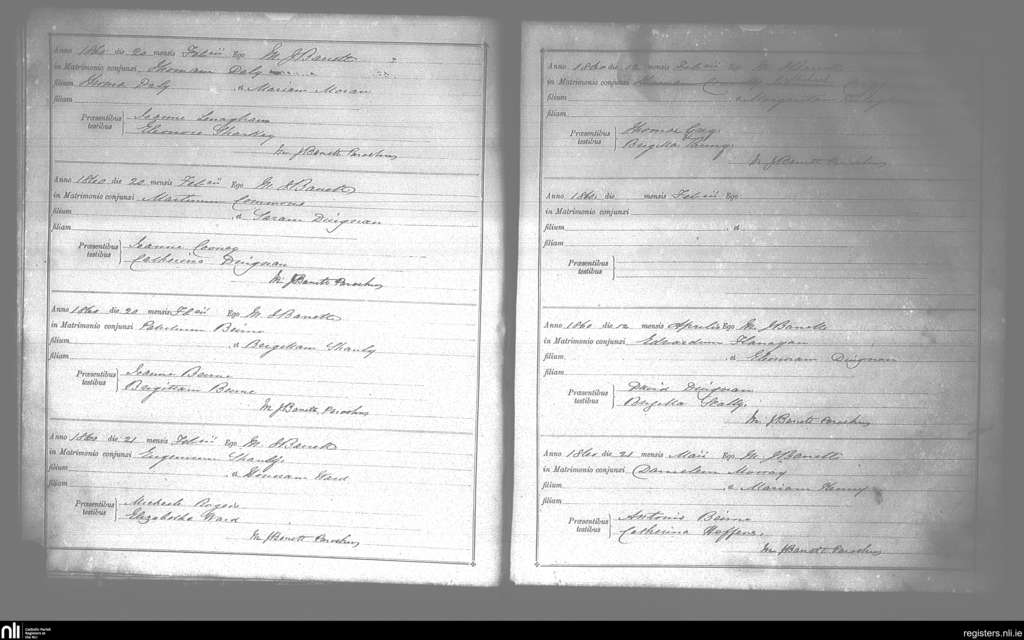 Anno 1860 die 20 mensis Febrii Ego M. J Barrett
in Matrimonio conjunxi Thomam Daly
filium Thoma Daly a Mariam Moran
filiam
Præsentibus testibus Jacume Lenaghan
Eleonora Sharkey
M. J Barrett Parochus
Anno 1860 die 20 mensis Febrii Ego M. J Barrett
in Matrimonio conjunxi Martinum Commons
filium a Saram Duignan
filiam
Præsentibus testibus Joanne Cooney
Catherina Duignan
M. J Barrett Parochus
Anno 1860 die 20 mensis Febrii Ego M. J Barrett
in Matrimonio conjunxi Petrum Beirne
filium a Brigittam Shanly
filiam
Præsentibus testibus Joanne Beirne
Brigittam Beirne
M. J Barrett Parochus
Anno 1860 die 21 mensis Febrii Ego M. J Barrett
in Matrimonio conjunxi Eugenium
filium a Honoram Ward
filiam
Præsentibus testibus Michaele Rogers
Elizabetha Ward
M. J Barrett Parochus
Anno 1860 die 12 mensis Ego M. J Barrett
in Matrimonio conjunxi
filium a Margaritam
filiam
Præsentibus testibus Thoma
Brigitta
M. J Barrett Parochus
Anno 1860 die mensis Febrii Ego
in Matrimonio conjunxi
filium a
filiam
Præsentibus testibus
Anno 1860 die 12 mensis Aprilis Ego M. J Barrett
in Matrimonio conjunxi Edvardum Flanagan
filium a Elonoram Duignan
filiam
Præsentibus testibus David Duignan
Brigitta Scally
M. J Barrett Parochus
Anno 1860 die 21 mensis Maii Ego M. J Barrett
in Matrimonio conjunxi Danielem Morray
filium a Mariam Kenny
filiam
Præsentibus testibus Antonio Beirne
Catherina
M. J Barrett Parochus
nli Catholic Parish Registers at the NLI
registers.nli.ie